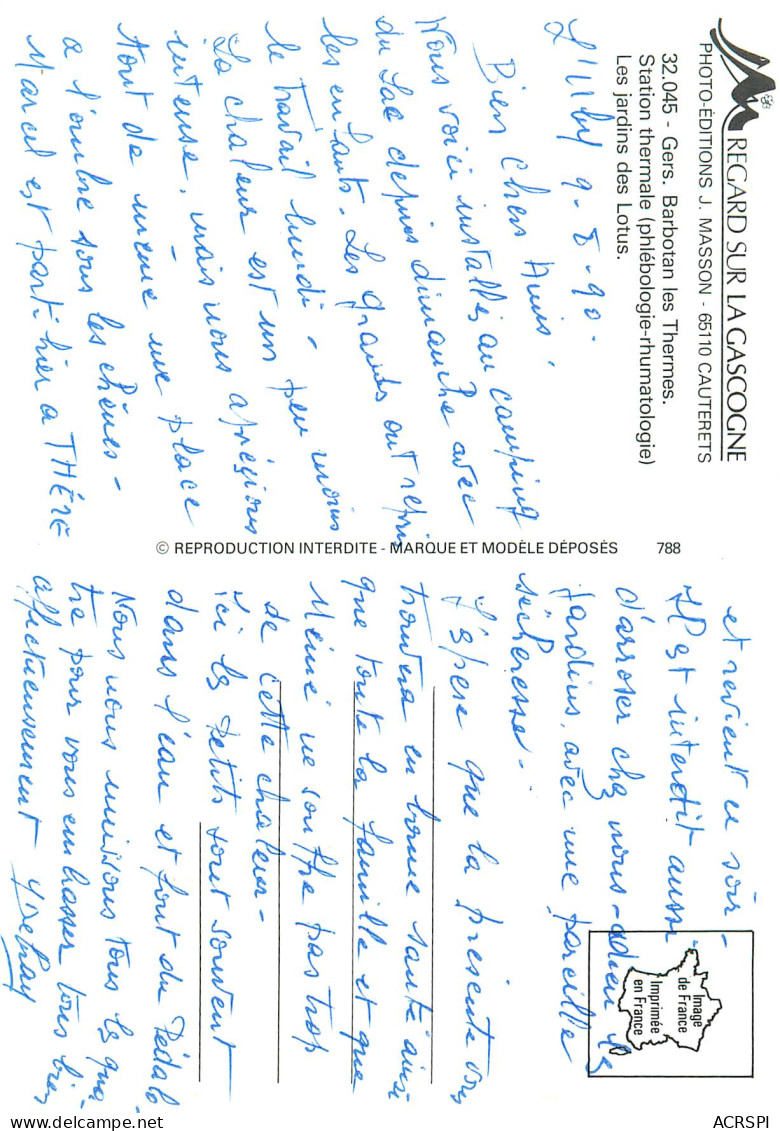 REGARD SUR LA GASCOGNE
PHOTO-ÉDITIONS J. MASSON - 65110 CAUTERETS
32.045 - Gers. Barbotan les Thermes.
Station thermale (phlébologie-rhumatologie)
Les jardins des Lotus.
9-8-90.
Bien chers Amis,
Nous voici installés au camping
du Lac depuis dimanche avec
les enfants. Les grands ont repris
le travail lundi - peu moins
La chaleur est un
intense, mais nous apprécions
tout de même une place
a l'ombre sous les chênes -
Marcel est parti hier a THÈZE
© REPRODUCTION INTERDITE - MARQUE ET MODÈLE DÉPOSÉS 788
et revient ce soir -
Il est interdit aussi
d'arroser chez nous - adieu les
jardins, avec une pareille
sécheresse -
J'espère que la présente vous
trouvera en bonne santé ainsi
que toute la famille et que
Mémé ne souffre pas trop
de cette chaleur -
ici les petits sont souvent
dans l'eau et font du Pédalo
Nous nous unissons tous les qua-
tre pour vous embrasser tous bien
affectueusement
Image
de France
Imprimée
en France
ACRSPI